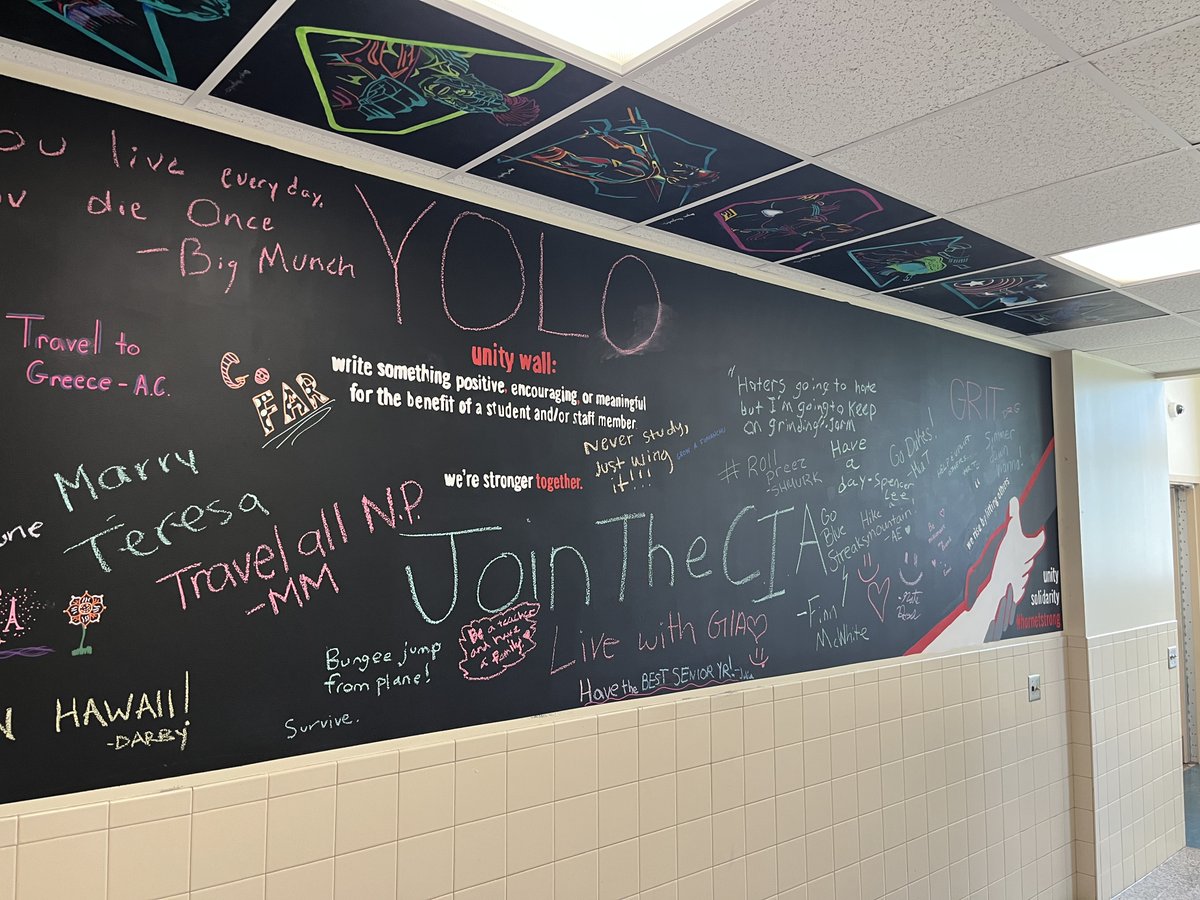 ou live everyday.
die Once
-Big Munch
YOLO
Travel to
Greece - A.C.
GO
FAR
unity wall:
write something positive, encouraging, or meaningful
for the benefit of a student and/or staff member
we're stronger together.
never study,
Just wing
it!!!
"Haters going to hate
but I'm going to keep
on grinding"-Jarm
# Roll
Deez
Have
a
day-Spencer
Lee!
Go Dukes!
GRIT
Simmer
down
Marry
Teresa
Travel all N.P.
-MM
Join The C.I.A
Go
Blue
Streaks
Hike a
mountain!
-AE
-Finn
McWhite
we rise by lifting others
unity
solidarity
#hornetstrong
Be a teacher
and have
a family.
Live with GIIA
Have the BEST SENIOR YR!-Julia
Bungee jump
from plane!
Survive.
HAWAII!
-DARBY